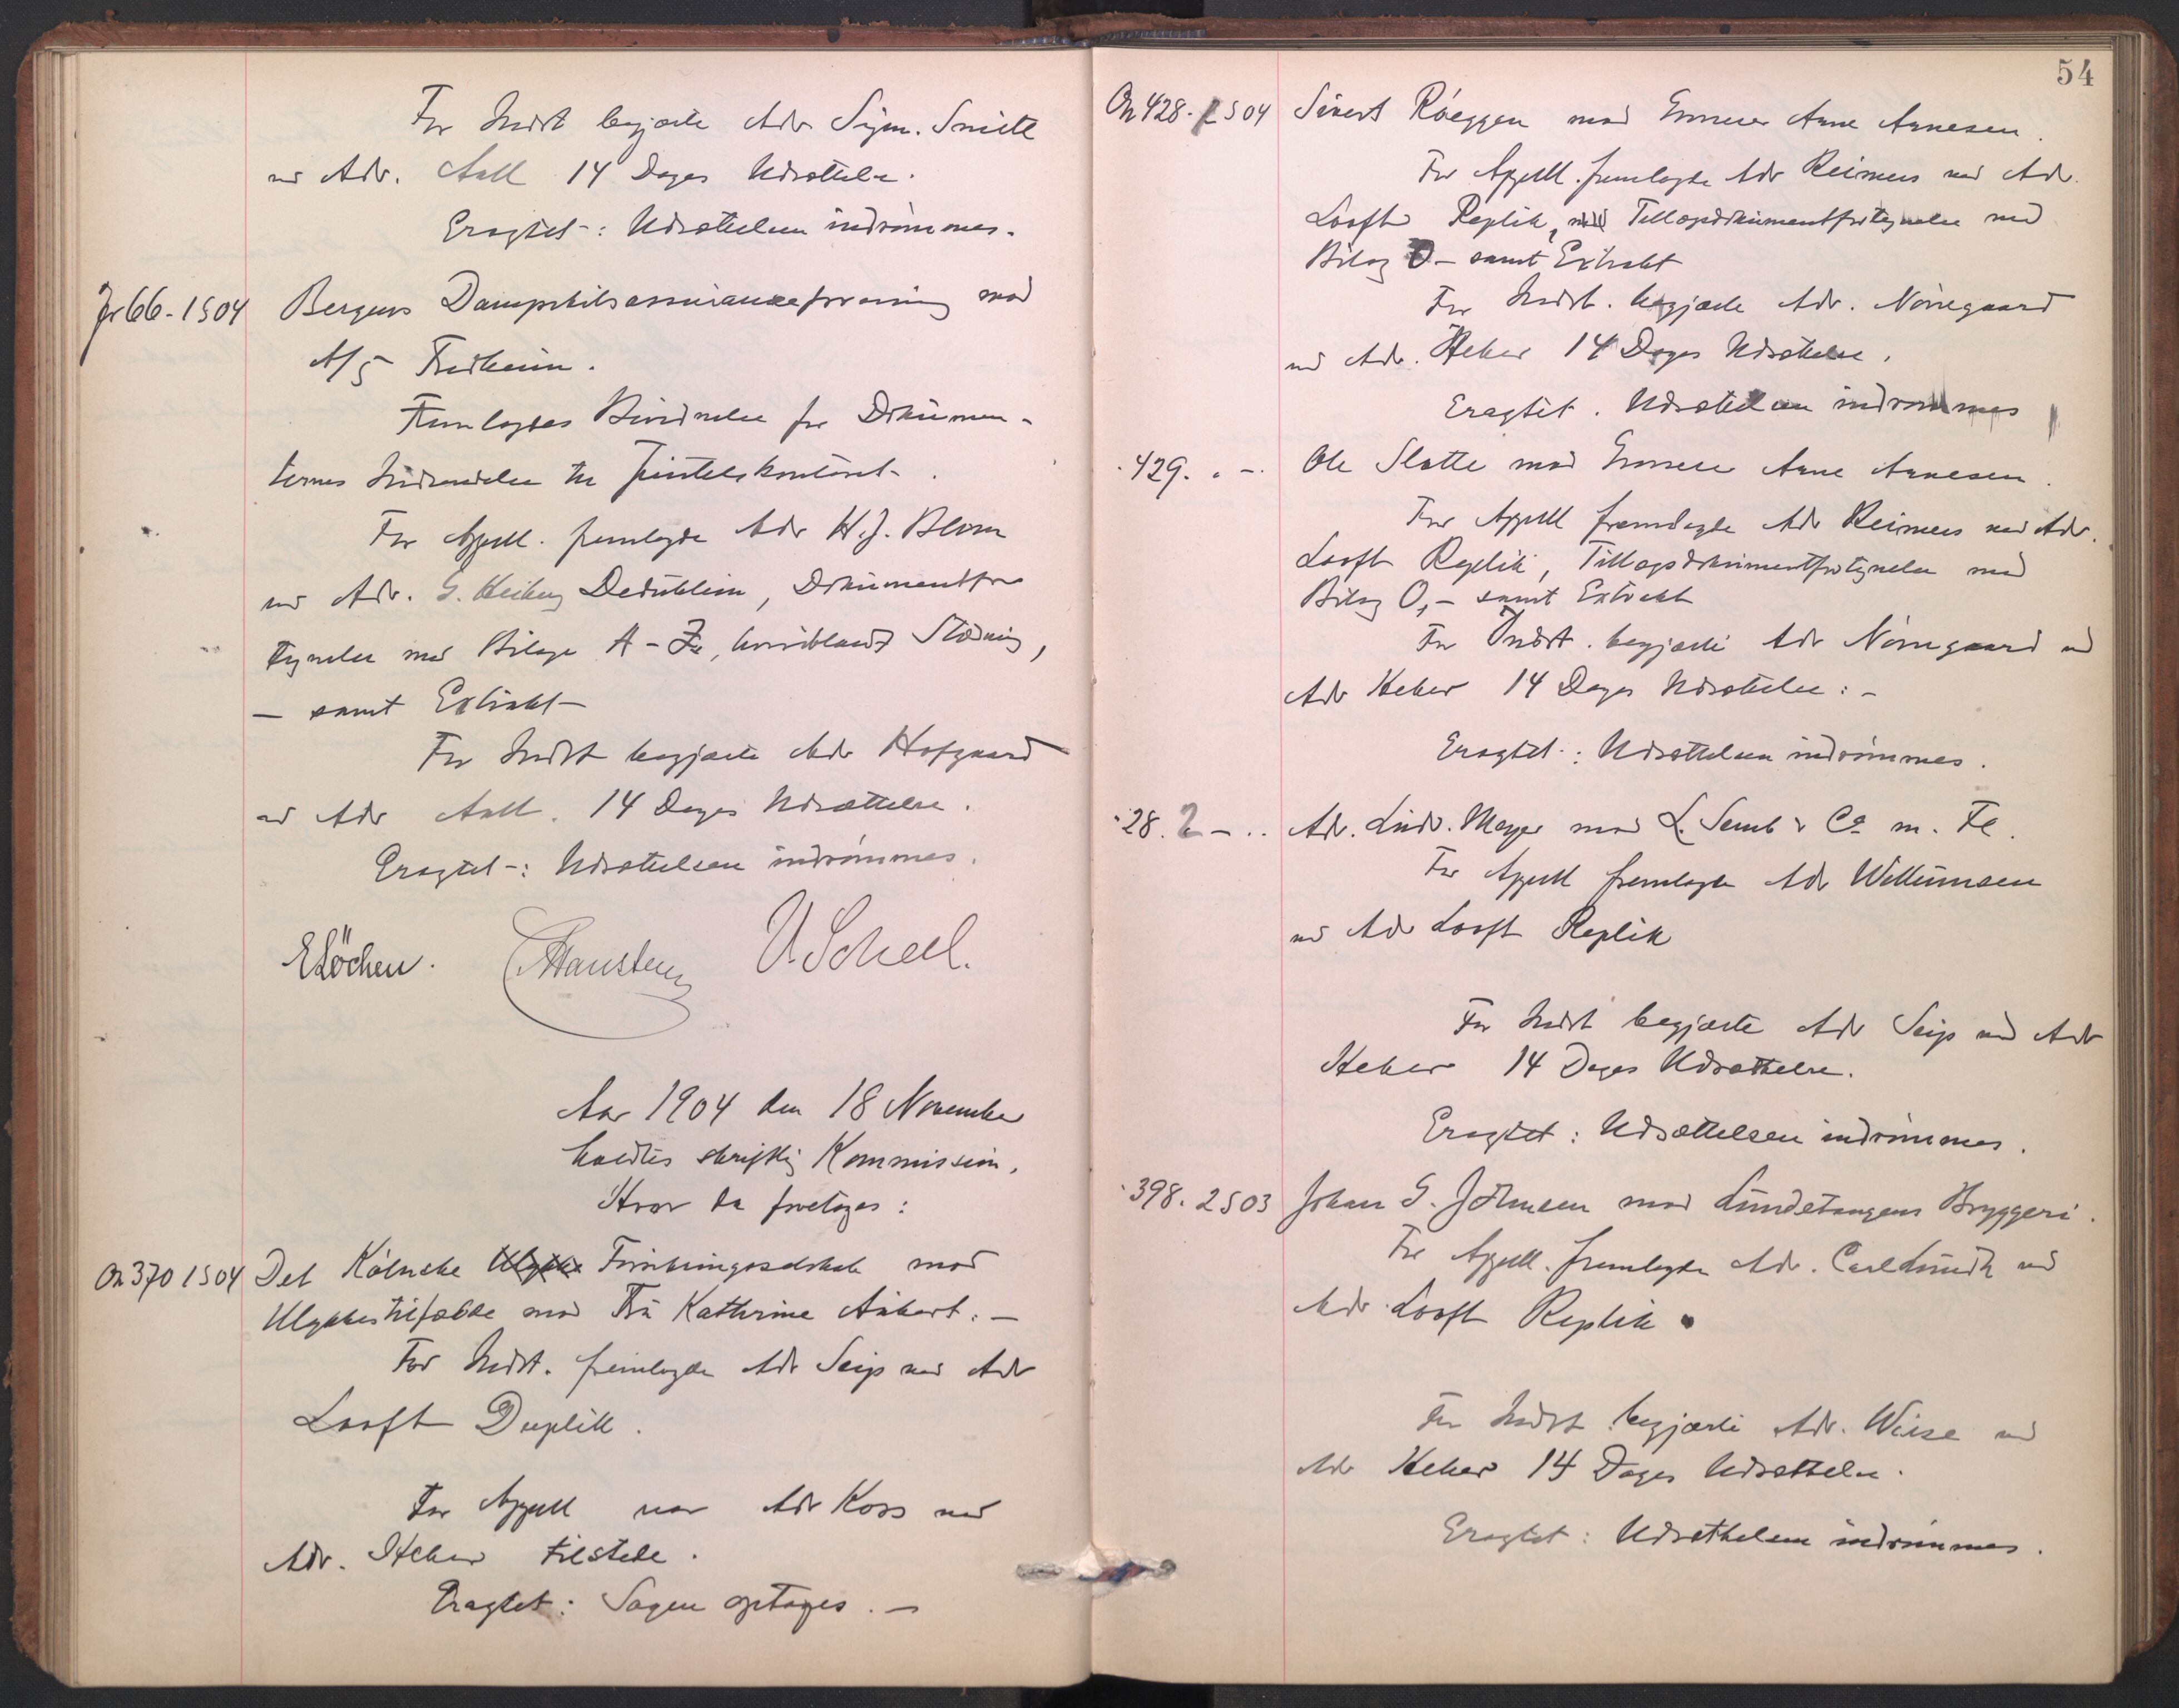 For Indst begjærte Adv Sejm. Smith
ved Adv. Aall 14 Dages Udsættelse.
Eragtet-: Udsættelsen indrömmes.
Jr 66-1 S 04 Bergens Dampskibsassuranceforening mod
A/S Fredheim.
Fremlagdes Bevidnelse for Dokumen-
ternes Indsendelse til Justitskontoret.
For Appell. fremlagde Adv H.J. Blom
ved Adv. G. Heiberg Deduktion, Dokumentfor
tegnelse med Bilage A-Z, hvoriblandt Stævning,
- samt Extrakt-
For Indst begjærte Adv Hofgaard
ved Adv Aall. 14 Dages Udsættelse.
Eragtet-: Udsættelsen indrömmes.
ELöchen. Hansteen U. Scheel.
Aar 1904 den 18 November
holdtes skriftlig Kommission,
Hvor da foretoges:
On 370 1 S 04 Det Kölnske Forsikringsselskab mod
Ulykkestilfælde mod Fru Kathrine Aubert.-
For Indst. fremlagde Adv Seip ved Adv
Looft Duplik.
For Appell var Adv Koss ved
Adv. Heber tilstede.
Eragtet: Sagen optages.-
54
On 428. 2 S 04 Sivert Röeggen mod Enmener Anne Aanesen.
For Appell. fremlagde Adv Reimers ved Adv.
Looft Replik, Tillægsdokumentfortegnelse med
Bilag O- samt Extrakt
For Indst. begjærte Adv. Nörregaard
ved Adv. Heber 14 Dages Udsættelse.
Eragtet. Udsættelsen indrömmes
429. . -. Ole Slotte mod Anne Aanesen.
For Appell fremlagde Adv Reimers ved Adv.
Looft Replik, Tillægsdokumentfortegnelse med
Bilag O,- samt Extrakt
For Indst. begjærte Adv Nörregaard ved
Adv Heber 14 Dages Udsættelse:-
Eragtet-: Udsættelsen indrömmes.
28. 2 - .. Adv. Ludv. Meyer mod L. Semb & Co m. Fl.
For Appell fremlagde Adv Willumsen
ved Adv Looft Replik
For Indst begjærte Adv Seip ved Adv
Heber 14 Dages Udsættelse.
Eragtet: Udsættelsen indrömmes.
398. 2 S 03 Johan G. Johnsen mod Lundetangens Bryggeri.
For Appell. fremlagde Adv. Carl Lundh ved
Adv. Looft Replik.
For Indst begjærte Adv. Wiese ved
Adv Heber 14 Dages Udsættelse.
Eragtet: Udsættelsen indrömmes.